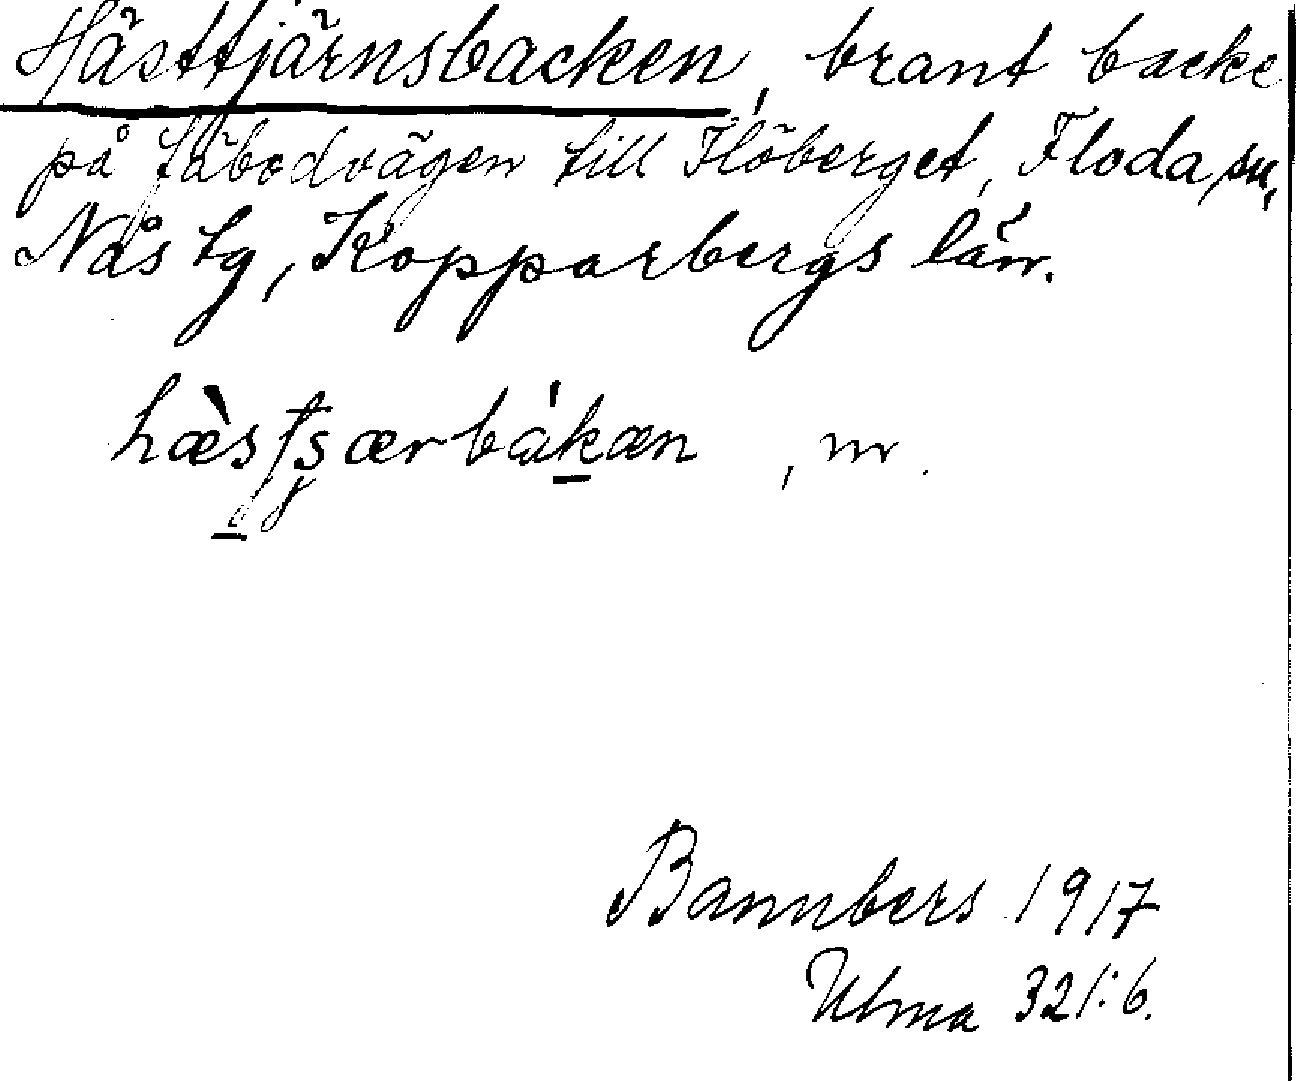 Hästtjärnsbacken, brant backe
på fäbodvägen till Flöberget, Floda sn,
Nås tg, Kopparbergs län.
, m.
Bannbers 1917
Ulma 321:6.